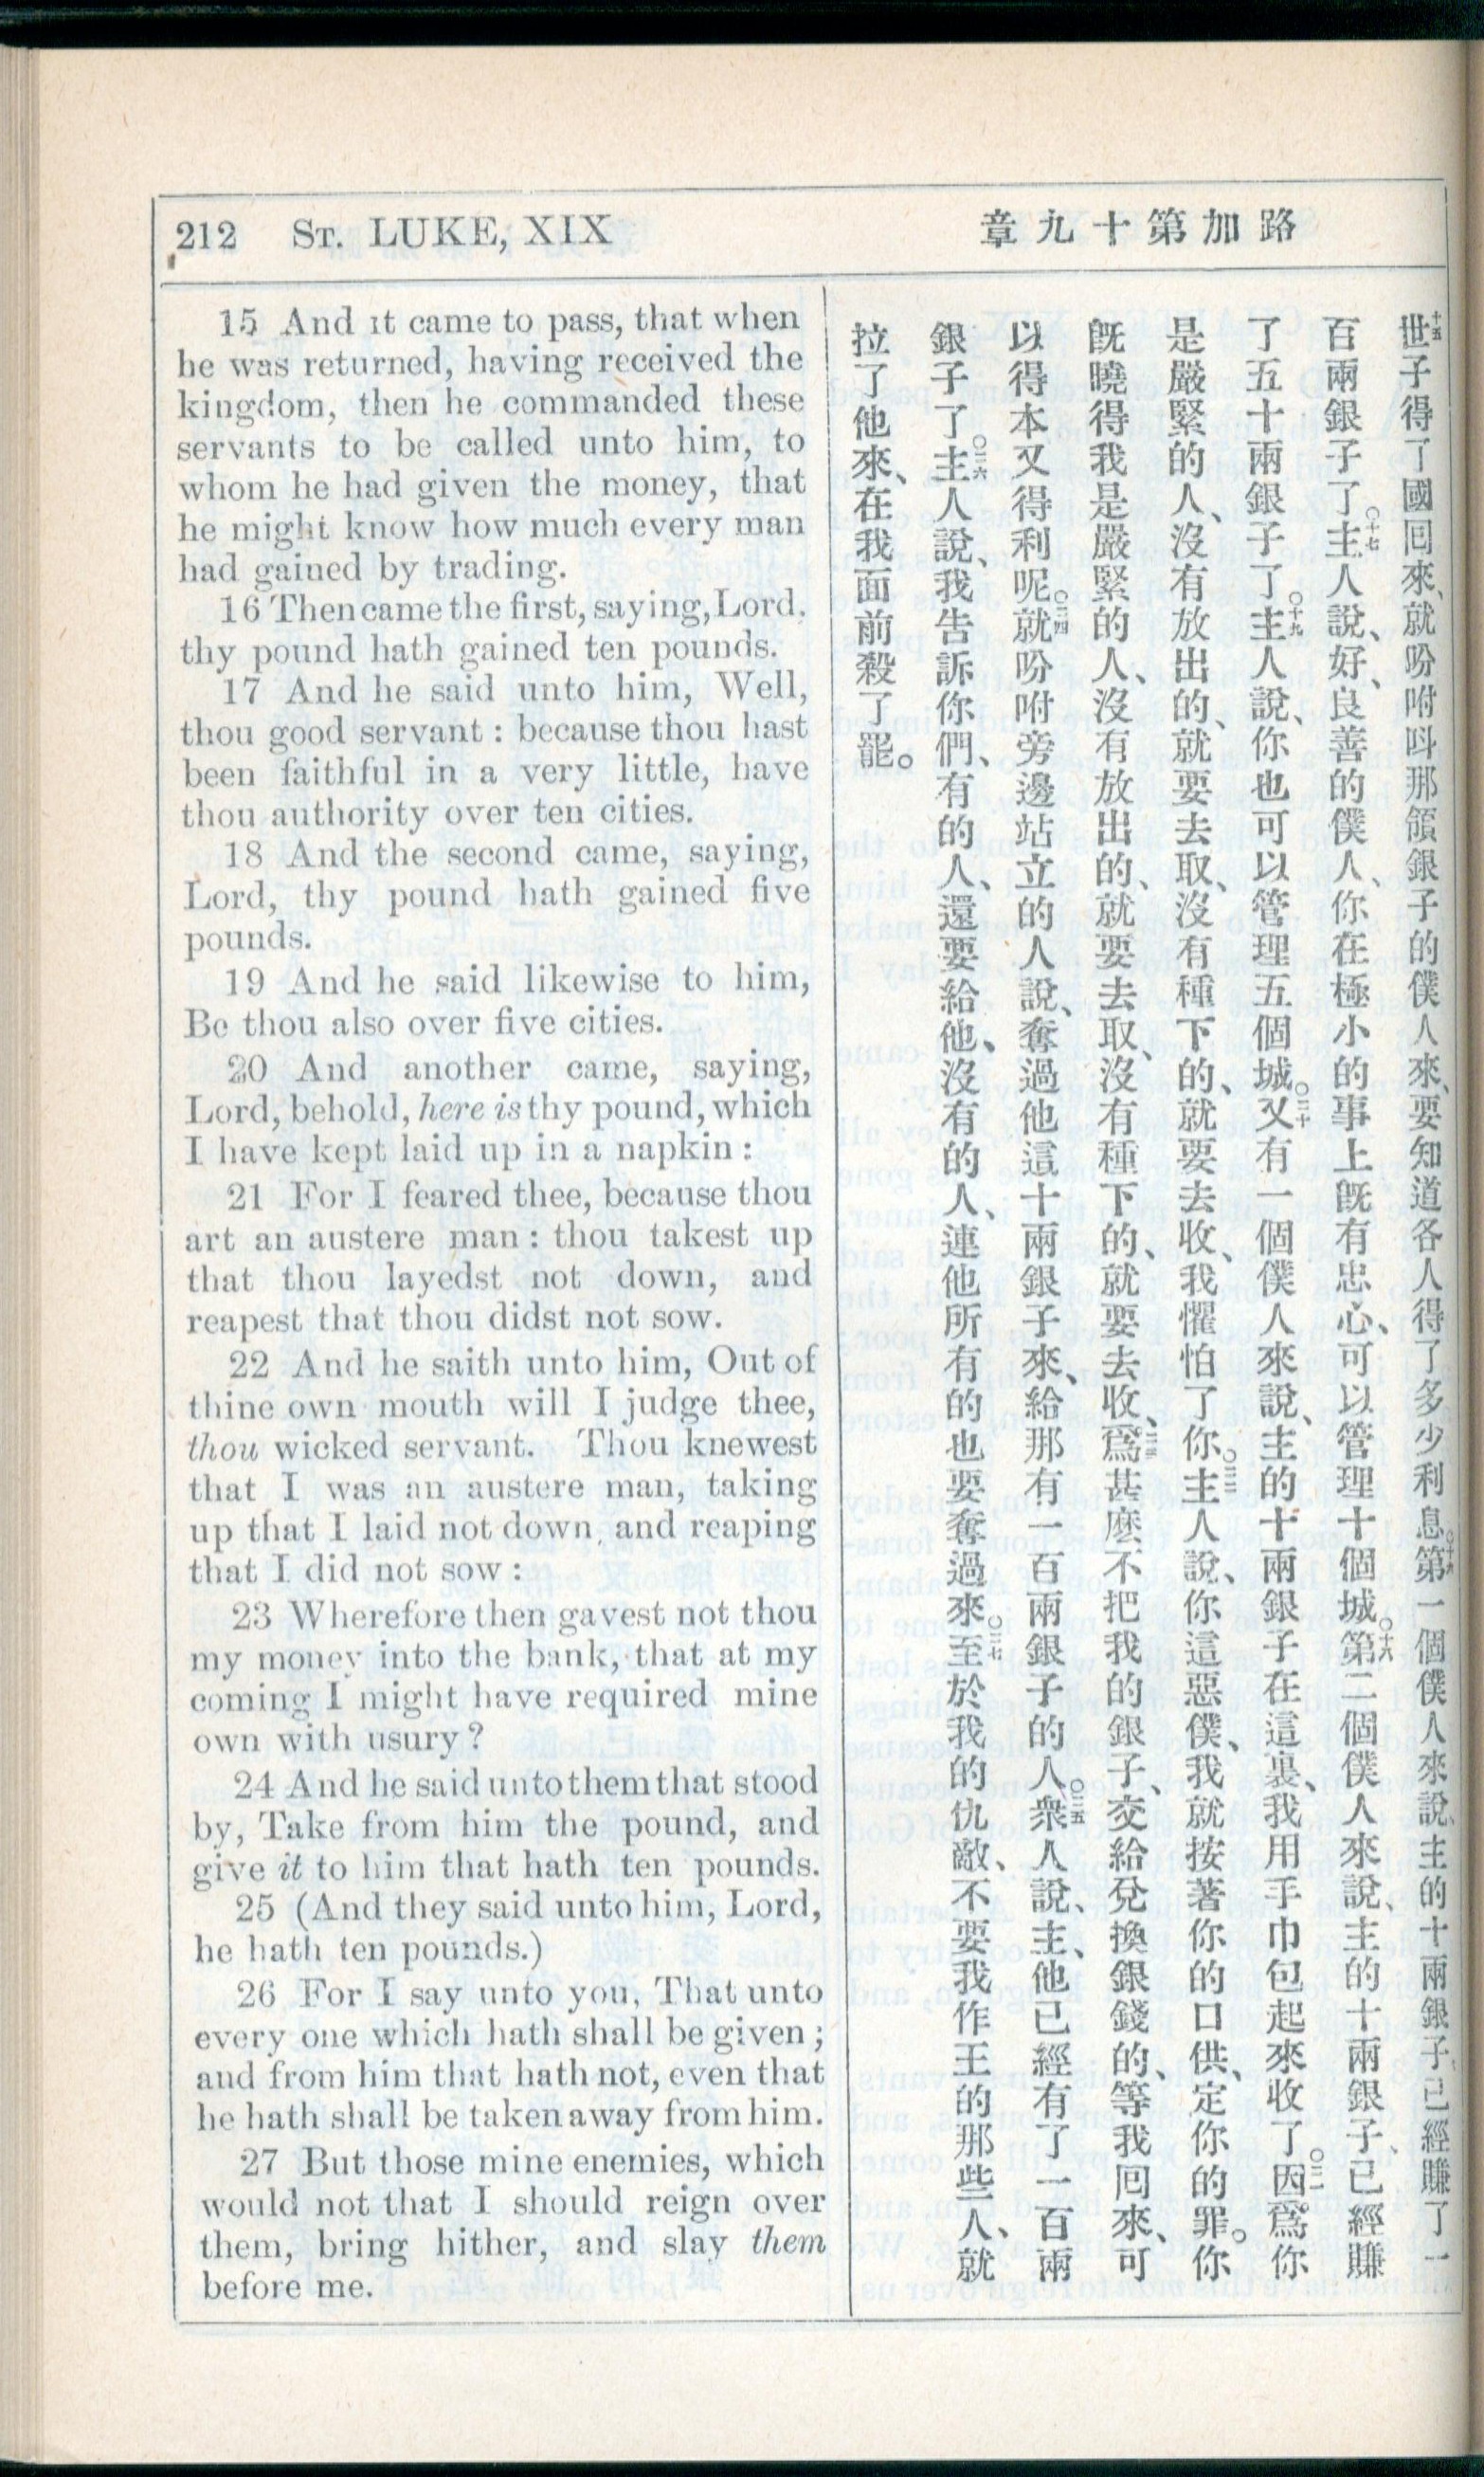 212 ST. LUKE, XIX
章九十第加路
15 And it came to pass, that when
he was returned, having received the
kingdom, then he commanded these
servants to be called unto him, to
whom he had given the money, that
he might know how much every man
had gained by trading.
16 Then came the first, saying, Lord,
thy pound hath gained ten pounds.
17 And he said unto him, Well,
thou good servant: because thou hast
been faithful in a very little, have
thou authority over ten cities.
18 And the second came, saying,
Lord, thy pound hath gained five
pounds.
19 And he said likewise to him,
Be thou also over five cities.
20 And another came, saying,
Lord, behold, here is thy pound, which
I have kept laid up in a napkin:
21 For I feared thee, because thou
art an austere man: thou takest up
that thou layedst not down, and
reapest that thou didst not sow.
22 And he saith unto him, Out of
thine own mouth will I judge thee,
thou wicked servant. Thou knewest
that I was an austere man, taking
up that I laid not down, and reaping
that I did not sow:
23 Wherefore then gavest not thou
my money into the bank, that at my
coming I might have required mine
own with usury?
24 And he said unto them that stood
by, Take from him the pound, and
give it to him that hath ten pounds.
25 (And they said unto him, Lord,
he hath ten pounds.)
26 For I say unto you, That unto
every one which hath shall be given;
and from him that hath not, even that
he hath shall be taken away from him.
27 But those mine enemies, which
would not that I should reign over
them, bring hither, and slay them
before me.
十五世子得了國回來、就吩咐呌那領銀子的僕人來、要知道各人得了多少利息。十六第一個僕人來說、主的十兩銀子、已經賺了一
百兩銀子了。十七主人說、好、良善的僕人、你在極小的事上旣有忠心、可以管理十個城。十八第二個僕人來說、主的十兩銀子、已經賺
了五十兩銀子了。十九主人說、你也可以管理五個城。二十又有一個僕人來說、主的十兩銀子在這裏、我用手巾包起來收了。二一因爲你
是嚴緊的人、沒有放出的、就要去取、沒有種下的、就要去收、我懼怕了你。二二主人說、你這惡僕、我就按著你的口供、定你的罪。你
旣曉得我是嚴緊的人、沒有放出的、就要去取、沒有種下的、就要去收、二三爲甚麽不把我的銀子、交給兌換銀錢的、等我回來、可
以得本又得利呢。二四就吩咐旁邊站立的人說、奪過他這十兩銀子來、給那有一百兩銀子的人。二五衆人說、主、他已經有了一百兩
銀子了。二六主人說、我告訴你們、有的人、還要給他、沒有的人、連他所有的也要奪過來。二七至於我的仇敵、不要我作王的那些人、就
拉了他來、在我面前殺了罷。